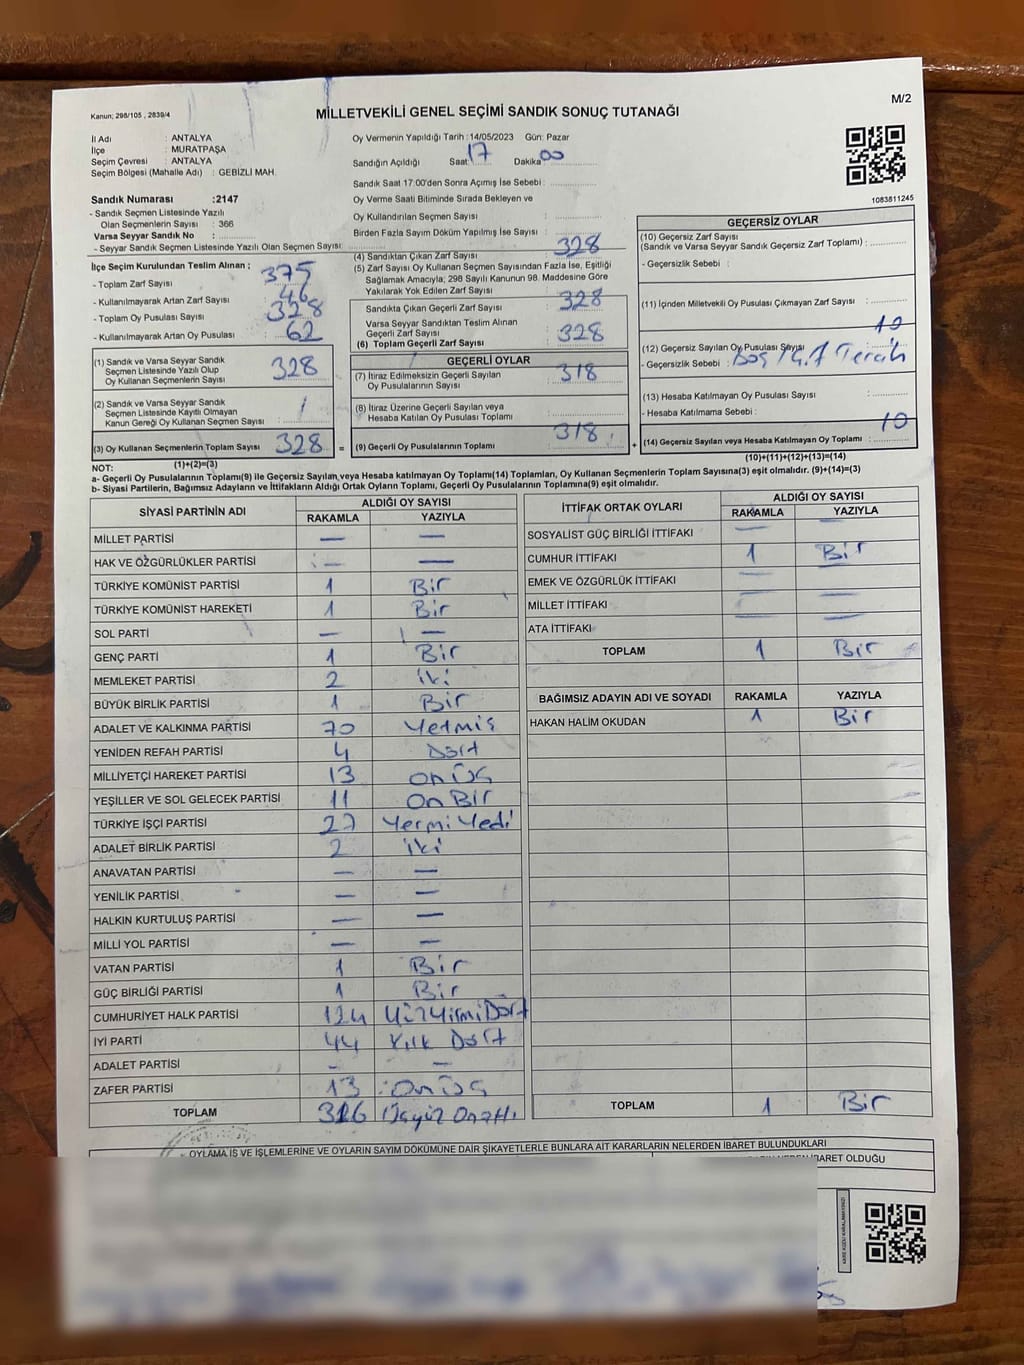 Kanun; 298/105 , 2839/4
MİLLETVEKİLİ GENEL SEÇİMİ SANDIK SONUÇ TUTANAĞI
M/2
İl Adı : ANTALYA
İlçe : MURATPAŞA
Seçim Çevresi : ANTALYA
Seçim Bölgesi (Mahalle Adı) : GEBİZLİ MAH.
Oy Vermenin Yapıldığı Tarih :14/05/2023 Gün: Pazar
Sandığın Açıldığı Saat: 17 Dakika: 00
Sandık Saat 17:00'den Sonra Açımış İse Sebebi :
Oy Verme Saati Bitiminde Sırada Bekleyen ve
Oy Kullandırılan Seçmen Sayısı :
Birden Fazla Sayım Döküm Yapılmış İse Sayısı :
1083811245
Sandık Numarası :2147
- Sandık Seçmen Listesinde Yazılı
Olan Seçmenlerin Sayısı : 366
Varsa Seyyar Sandık No :
- Seyyar Sandık Seçmen Listesinde Yazılı Olan Seçmen Sayısı:
İlçe Seçim Kurulundan Teslim Alınan ;
- Toplam Zarf Sayısı : 375
- Kullanılmayarak Artan Zarf Sayısı : 46
- Toplam Oy Pusulası Sayısı : 328
- Kullanılmayarak Artan Oy Pusulası : 62
(1) Sandık ve Varsa Seyyar Sandık
Seçmen Listesinde Yazılı Olup
Oy Kullanan Seçmenlerin Sayısı : 328
(2) Sandık ve Varsa Seyyar Sandık
Seçmen Listesinde Kayıtlı Olmayan
Kanun Gereği Oy Kullanan Seçmen Sayısı :
(3) Oy Kullanan Seçmenlerin Toplam Sayısı : 328 =
(1)+(2)=(3)
(4) Sandıktan Çıkan Zarf Sayısı : 328
(5) Zarf Sayısı Oy Kullanan Seçmen Sayısından Fazla İse, Eşitliği
Sağlamak Amacıyla; 298 Sayılı Kanunun 98. Maddesine Göre
Yakılarak Yok Edilen Zarf Sayısı :
Sandıkta Çıkan Geçerli Zarf Sayısı : 328
Varsa Seyyar Sandıktan Teslim Alınan
Geçerli Zarf Sayısı :
(6) Toplam Geçerli Zarf Sayısı : 328
GEÇERLİ OYLAR
(7) İtiraz Edilmeksizin Geçerli Sayılan
Oy Pusulalarının Sayısı : 318
(8) İtiraz Üzerine Geçerli Sayılan veya
Hesaba Katılan Oy Pusulası Toplamı :
(9) Geçerli Oy Pusulalarının Toplamı : 318 +
GEÇERSİZ OYLAR
(10) Geçersiz Zarf Sayısı
(Sandık ve Varsa Seyyar Sandık Geçersiz Zarf Toplamı) :
- Geçersizlik Sebebi :
(11) İçinden Milletvekili Oy Pusulası Çıkmayan Zarf Sayısı :
(12) Geçersiz Sayılan Oy Pusulası Sayısı : 10
- Geçersizlik Sebebi : Boş Tercih
(13) Hesaba Katılmayan Oy Pusulası Sayısı :
- Hesaba Katılmama Sebebi :
(14) Geçersiz Sayılan veya Hesaba Katılmayan Oy Toplamı : 10
(10)+(11)+(12)+(13)=(14)
NOT:
a- Geçerli Oy Pusulalarının Toplamı(9) ile Geçersiz Sayılan veya Hesaba katılmayan Oy Toplamı(14) Toplamları, Oy Kullanan Seçmenlerin Toplam Sayısına(3) eşit olmalıdır. (9)+(14)=(3)
b- Siyasi Partilerin, Bağımsız Adayların ve İttifakların Aldığı Ortak Oyların Toplamı, Geçerli Oy Pusulalarının Toplamına(9) eşit olmalıdır.
SİYASİ PARTİNİN ADI ALDIĞI OY SAYISI
RAKAMLA YAZIYLA
MİLLET PARTİSİ — —
HAK VE ÖZGÜRLÜKLER PARTİSİ — —
TÜRKİYE KOMÜNİST PARTİSİ 1 Bir
TÜRKİYE KOMÜNİST HAREKETİ 1 Bir
SOL PARTİ — —
GENÇ PARTİ 1 Bir
MEMLEKET PARTİSİ 2 iki
BÜYÜK BİRLİK PARTİSİ 1 Bir
ADALET VE KALKINMA PARTİSİ 70 Yetmiş
YENİDEN REFAH PARTİSİ 4 Dört
MİLLİYETÇİ HAREKET PARTİSİ 13 on üç
YEŞİLLER VE SOL GELECEK PARTİSİ 11 On Bir
TÜRKİYE İŞÇİ PARTİSİ 27 Yermi Yedi
ADALET BİRLİK PARTİSİ 2 iki
ANAVATAN PARTİSİ — —
YENİLİK PARTİSİ — —
HALKIN KURTULUŞ PARTİSİ — —
MİLLİ YOL PARTİSİ — —
VATAN PARTİSİ 1 Bir
GÜÇ BİRLİĞİ PARTİSİ 1 Bir
CUMHURİYET HALK PARTİSİ 124 Yüz Yirmi Dört
İYİ PARTİ 44 Kırk Dört
ADALET PARTİSİ — —
ZAFER PARTİSİ 13 On üç
TOPLAM 316 Üçyüz Onaltı
İTTİFAK ORTAK OYLARI ALDIĞI OY SAYISI
RAKAMLA YAZIYLA
SOSYALİST GÜÇ BİRLİĞİ İTTİFAKI — —
CUMHUR İTTİFAKI 1 Bir
EMEK VE ÖZGÜRLÜK İTTİFAKI — —
MİLLET İTTİFAKI — —
ATA İTTİFAKI — —
TOPLAM 1 Bir
BAĞIMSIZ ADAYIN ADI VE SOYADI RAKAMLA YAZIYLA
HAKAN HALİM OKUDAN 1 Bir
TOPLAM 1 Bir
OYLAMA İŞ VE İŞLEMLERİNE VE OYLARIN SAYIM DÖKÜMÜNE DAİR ŞİKAYETLERLE BUNLARA AİT KARARLARIN NELERDEN İBARET BULUNDUKLARI
İBARET OLDUĞU